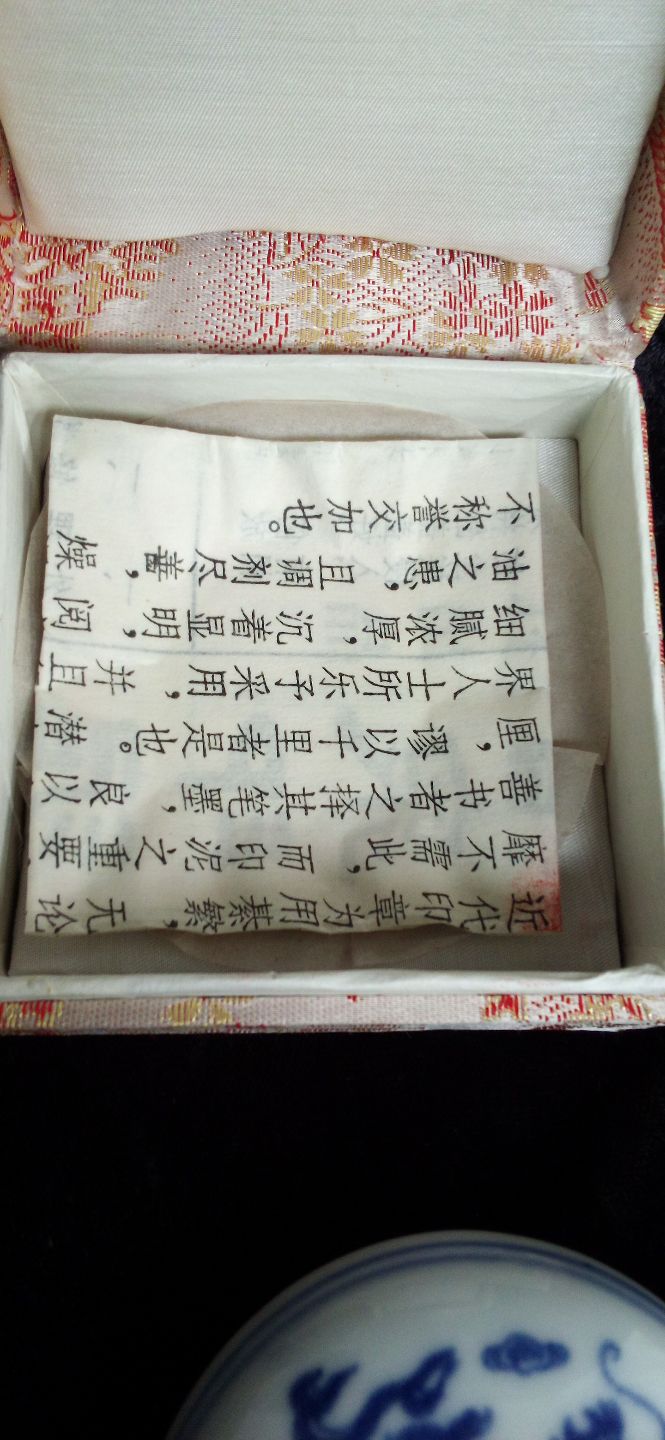 近代印章为用綦繁，无论
靡不需此，而印泥之重要
善书者之择其笔墨，良以
厘，谬以千里者是也。潜
界人士所乐予采用，并且
细腻浓厚，沉着显明，阅
油之患，且调剂尽善，燥
不称誉交加也。